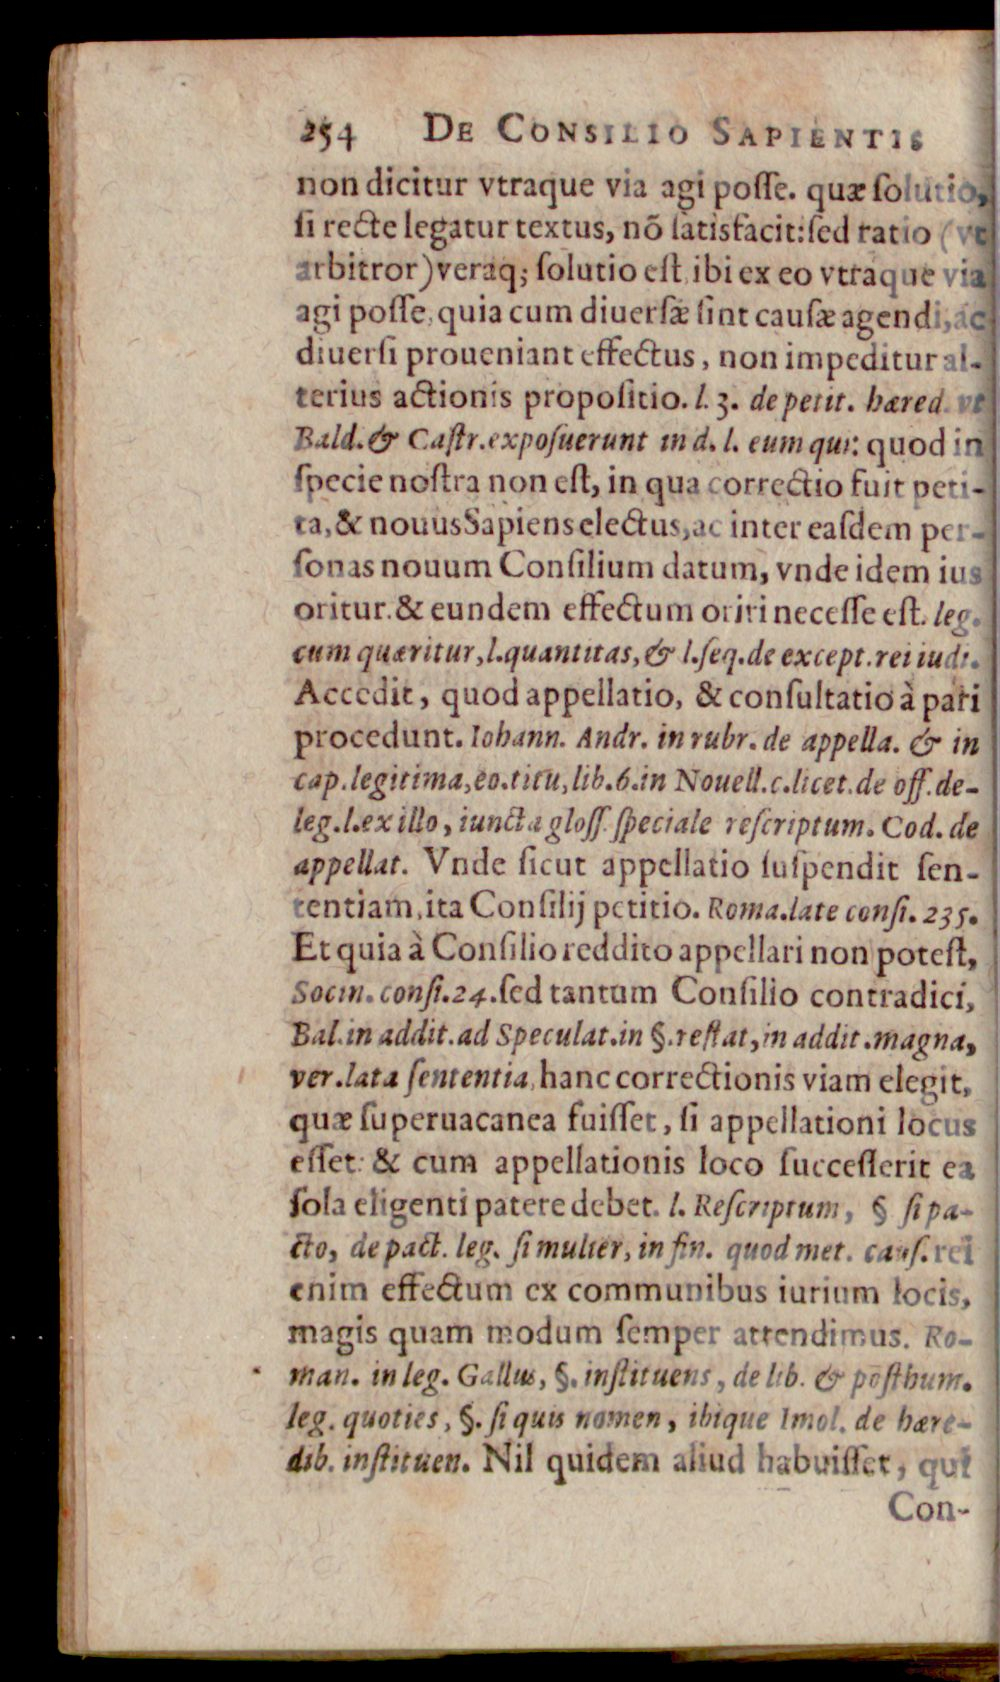 254 DE CONSILIO SAPIENTIS
non dicitur vtraque via agi posse. quæ solutio,
si recte legatur textus, nõ satisfacit: sed ratio (vt
arbitror) veraq; solutio est, ibi ex eo vtraque via
agi posse, quia cum diuersæ sint causæ agendi, ac
diuersi proueniant effectus, non impeditur al-
terius actionis propositio. l. 3. de petit. hæred. vt
Bald. & Castr. exposuerunt in d. l. eum qui: quod in
specie nostra non est, in qua correctio fuit peti-
ta, & nouus Sapiens electus, ac inter easdem per-
sonas nouum Consilium datum, vnde idem ius
oritur. & eundem effectum oriri necesse est. leg.
cum quæritur, l. quantitas, & l. seq. de except. rei iudi.
Accedit, quod appellatio, & consultatio à pari
procedunt. Iohann. Andr. in rubr. de appella. & in
cap. legitima, eo. titu, lib. 6. in Nouell. c. licet. de off. de-
leg. l. ex illo, iuncta gloss. speciale rescriptum. Cod. de
appellat. Vnde sicut appellatio suspendit sen-
tentiam, ita Consilij petitio. Roma. late consi. 235.
Et quia à Consilio reddito appellari non potest,
Socin. consi. 24. sed tantum Consilio contradici,
Bal. in addit. ad Speculat. in §. restat, in addit. magna,
ver. lata sententia, hanc correctionis viam elegit,
quæ superuacanea fuisset, si appellationi locus
esset: & cum appellationis loco successerit ea
sola eligenti patere debet. l. Rescriptum, § si pa-
cto, de pact. leg. si mulier, in fin. quod met. caus. rei
enim effectum ex communibus iurium locis,
magis quam modum semper attendimus. Ro-
man. in leg. Gallus, §. instituens, de lib. & posthum.
leg. quoties, §. si quis nomen, ibique Imol. de hære-
dib. instituen. Nil quidem aliud habuisset, qui
Con-